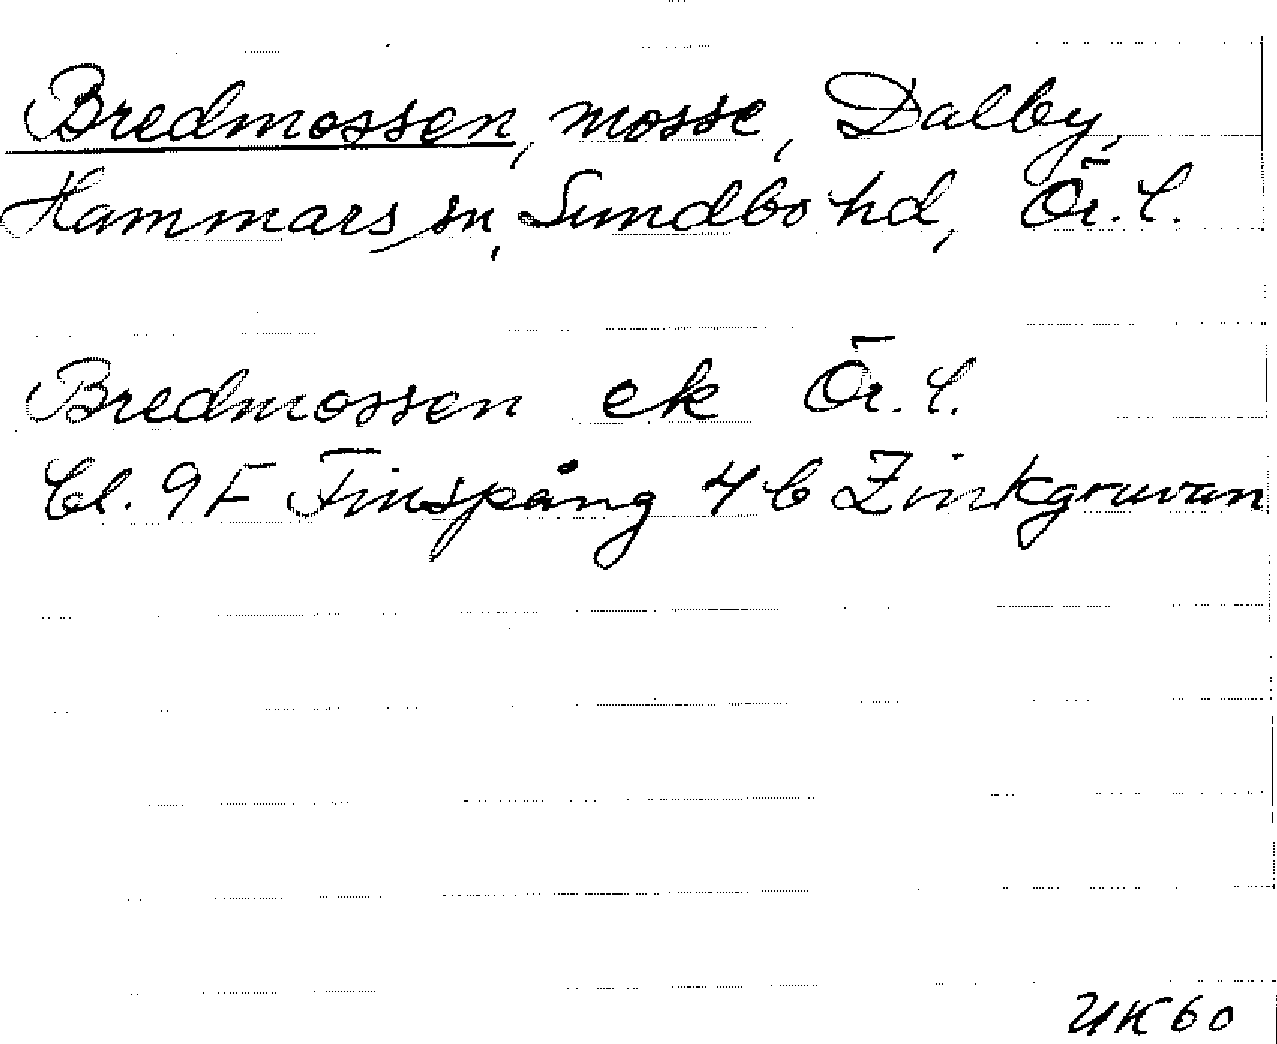 Bredmossen, mosse, Dalby,
Hammars sn, Sundbo hd, Ör. l.
Bredmossen ek Ör. l.
bl. 9F Finspång 4 b Zinkgruvan
UK60